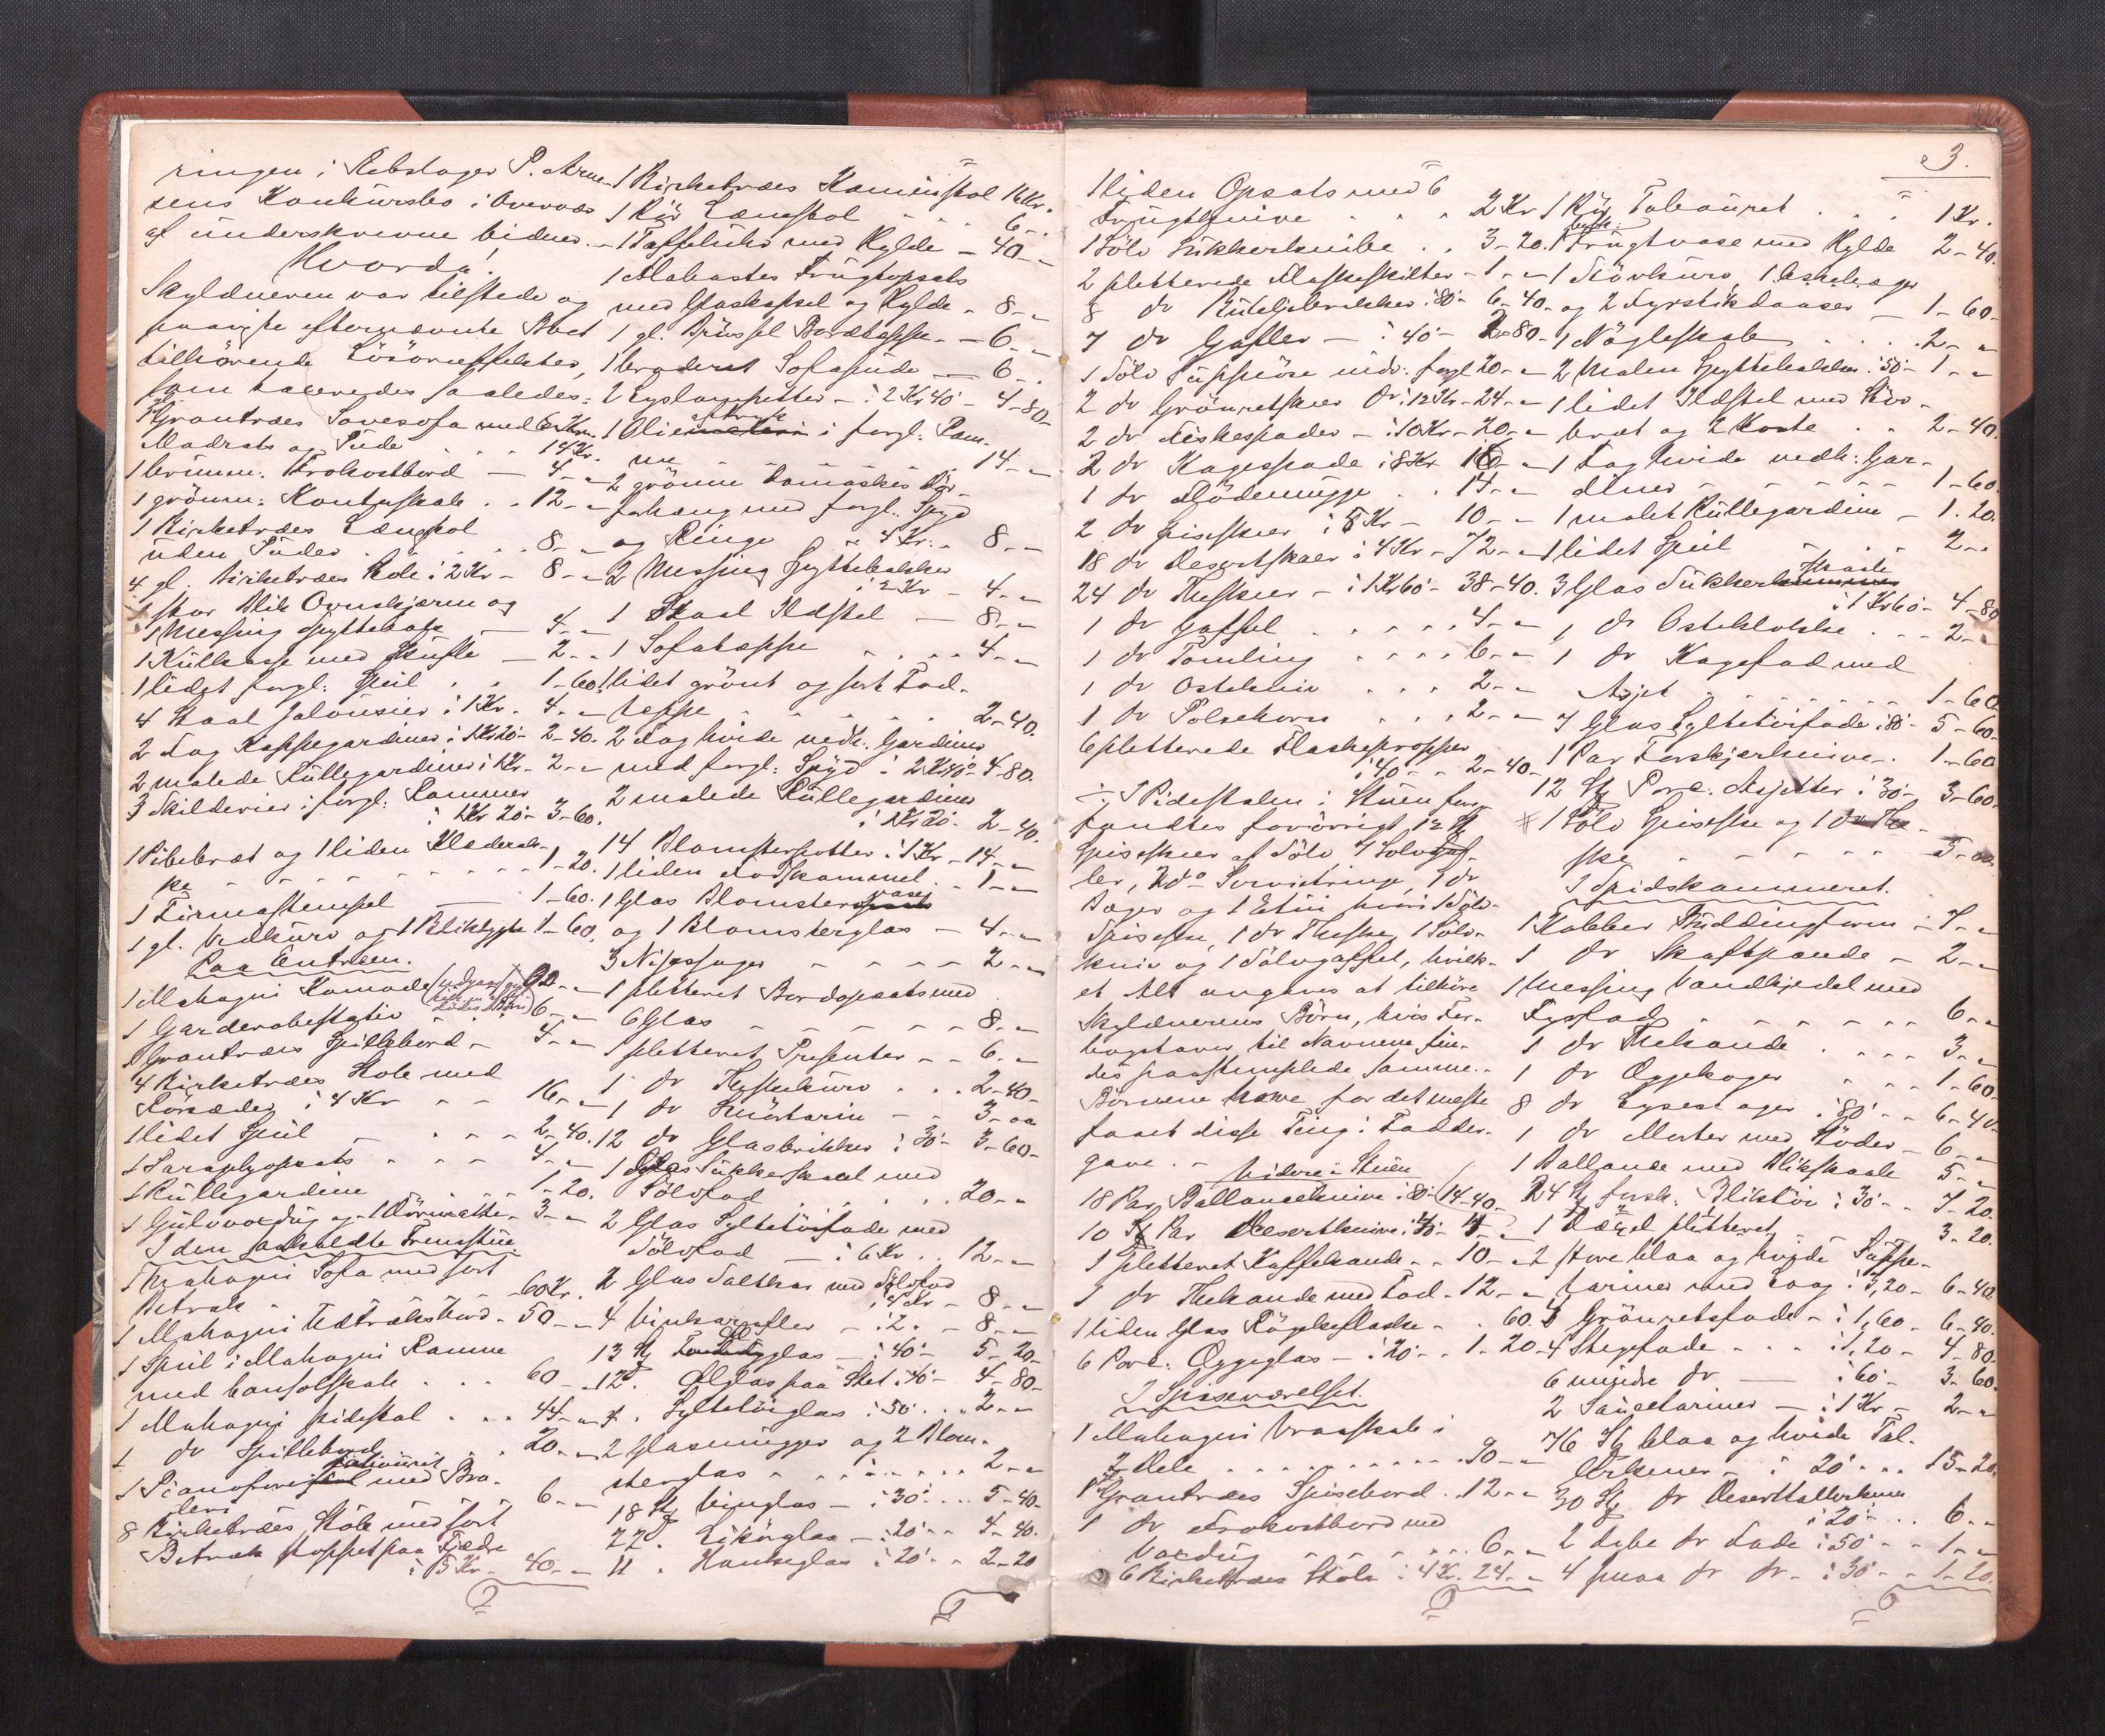 ringen i Rebslager P. Arne-
sens Konkursbo i Overvær
af underskrevne Vidner. –
Hvorda!
Skyldneren var tilstede og
paaviste efternævnte Boet
tilhørende Løsøreeffekter,
som taxeredes saaledes:
1 Grantræes Sovesofa med
Madrats og Pude . . . 14 Kr.
1 brunm: Frokostbord — 4 - "
1 grønm: Kontorskab . . 12 - "
1 Birketræes Lænestol
uden Puder . . . . 8 - "
4 gl. birketræes Stole i 2 Kr - 8 - "
1 stor Blik Ovnskjærm og
1 Messing Spyttebak — 4 - "
1 Kulkasse med Skuffe — 2 - "
1 lidet forgl: Speil . . 1 - 60.
4 Staal Jalousier i 1 Kr. 4 - "
2 Fag Kappegardiner i 1 Kr 20 - 2 - 40.
2 malede Rullegardiner i 1 Kr - 2 - "
3 Skilderier i forgl: Rammer
i 1 Kr 20 - 3 - 60.
1 Pibebræt og 1 liden Klædersk-
ke - - - - - 1 - 20.
1 Firmastempel — 1 - 60.
1 gl. Vedkurv og 1 Bliklygte 1 - 60.
Paa Entreen.
1 Mahogni Komode
1 Garderobestativ 6 - "
1 Grantræes Spillebord - 4 - "
4 Birketræes Stole med
Rørsæder i 4 Kr - - 16 - "
1 lidet Speil - - - - 2 - 40.
1 Paraplyopsats - - - 4 - "
1 Rullegardine - - - 1 - 20.
1 Gulvvoxdug og 1 Dørmatte - 3 - "
I den saakaldte Fremstue.
1 Mahogni Sofa med sort
Betræk - - - - 60 Kr.
1 Mahogni Udtræksbord - 50 - "
1 Speil i Mahogni Ramme
med Consolskab . . . 60 - "
1 Mahogni Pidestal . . . 44 - "
1 dr Spillebord . . . 20 - "
1 Pianoforte med Bro-
deri 6 - "
8 Birketræes Stole med sort
Betræk stoppet paa Fjædre
i 5 Kr - 40 - "
1 Birketræes Kaminstol 16 Kr.
1 Rør Lænestol . . 6 - .
1 Taffeluhr med Hylde - 40 - "
1 Alabastes Frugtopsats
med Glaskapsel og Hylde - 8 - "
1 gl. Brüssel Bordteppe - 6 - "
1 broderet Sofapude — 6 - .
2 Lyslampetter - i 2 Kr 40 - 4 - 80
1 Olie i forgl: Ram-
me - - - - - - 14 - "
2 grønne Damaskes Dør-
forhæng med forgl. Spyd
og Ringe i 4 Kr. - 8 - "
2 Messing Spyttebakker
i 2 Kr - 4 - "
1 Staal Ildstel — 8 - "
1 Sofateppe . . . . 4 - "
1 lidet grønt og sort Fod-
teppe - - - - - 2 - 40.
2 Fag hvide nedh. Gardiner
med forgl: Spyd i 2 Kr 40 - 4 - 80.
2 malede Rullegardiner
i 1 Kr 20 - 2 - 40.
14 Blomsterpotter i 1 Kr - 14 - "
1 liden Fodskammel - 1 - "
1 Glas Blomstervase
og 1 Blomsterglas — 4 - "
3 Nipssager - - - - 2 - "
1 pletteret Bordopsats med
6 Glas - - - - - 8 - "
1 pletteret Presenter - - 6 - "
1 dr Theskekurv . . . 2 - 40 -
1 dr Smørtarin - - 3 - "
12 dr Glasbrikker i 30 - 3 - 60 -
1 Glas Sukkerskaal med
Sølvfad . . . . . 20 - "
2 Glas Syltetøifade med
Sølvfad — i 6 Kr . . 12 - "
2 Glas Saltkar med Sølvfod
i 4 Kr - 8 - "
4 Vinkarafler - i 2 . - 8 - "
13 St glas - i 40 - 5 - 20 -
12 " Ølglas paa Stet i 40 - 4 - 80 -
4 . Syltetøiglas i 50 . . . 2 - "
2 Glasmugger og 2 Blom-
sterglas - . . . . . . 2 - "
18 St Vinglas - i 30 . . . 5 - 40 -
22 " Likørglas - i 20 - - 4 - 40.
11 . Hankeglas i 20 - - 2 - 20
3.
1 liden Opsats med 6
Frugtknive . . . 2 Kr
1 Sølv Sukkerknibe . . 3 - 20.
2 pletterede Flaskeskilter - 1 - "
8 dr Knivlebrikker i 80 - 6 - 40 -
7 dr Gafler — i 40 - 2 - 80 -
1 Sølv Suppøse indv. forgl 20 - "
2 dr Grønretskeer dr i 12 Kr - 24 - "
2 dr Fiskespader - i 10 Kr - 20 - "
2 dr Kagespade i 8 Kr 16 - "
1 dr Flødemugge . . 14 - "
2 dr Spiseskeer i 5 Kr - 10 - "
18 dr Desertskeer i 4 Kr - 72 - "
24 dr Theskeer - i 1 Kr 60 - 38 - 40.
1 dr Gaffel . . . . . 4 - "
1 dr Tomling . . . . 6 - "
1 dr Ostekniv . . . 2 - "
1 dr Pølsehorn . . . 2 - "
6 pletterede Flaskepropper
i 40 - - 2 - 40 -
÷ I Pidestalen i Stuen fore-
fandtes forøvrigt 12 St
Spiseskeer af Sølv, 4 Sølvgaf-
ler, 2 do Servietringe, 1 dr
Bæger og 1 Etui hvori 1 Sølv-
Spiseske, 1 dr Theske, 1 Sølv-
kniv og 1 Sølvgaffel, hvilk-
et Alt angaves at tilhøre
Skyldnerens Børn, hvis For-
bogstaver til Navnene fin-
des paastemplede Samme. -
Børnene have for det meste
faaet disse Ting i Fadder-
gave. -
Videre i Stuen
18 Par Ballanceknive i 80 - 14 - 40 -
10 Par Desertknive i 40 - 4 -
1 pletteret Kaffekande - - 10 - "
1 dr Thekande med Fod - 12 - "
1 liden Glas Røgeflaske - . 60.
6 Porc: Æggeglas - i 20 - . 1 - 20
I Spiseværelset.
1 Mahogni Vraaskab i
2 Dele . . . . . . . . . 90 - "
1 Grantræes Spisebord . 12 - "
1 dr Frokostbord med
Voxdug - - - . . . 6 - "
6 Birketræes Stole i 4 Kr. 24 - "
1 Røg Tabouret . . . 1 Kr.
1 Frugtvase med Hylde 2 - 40.
1 Støvkurv, 1 Askebæger
og 2 Fyrstikdaaser — 1 - 60 -
1 Nøgleskab . . . . 2 - "
2 malen Spyttebakker i 50 - 1 - "
1 lidet Ildstel med Støv-
bræt og 2 Koste . . 2 - 40.
1 Fag hvide nedh: Gar-
diner - - - - - - 1 - 60.
1 malet Rullegardine - 1 . 20.
1 lidet Speil - . . 2 - .
3 Glas Sukkerskaale
i 1 Kr 60 - 4 - 80
1 dr Osteklokke . . . 2 - "
1 dr Kagefad med
Asjet - - - - - - 1 - 60
7 Glas Syltetøifade i 80 - 5 - 60 -
1 Par Forskjærknive - . 1 - 60
12 St Porc: Asjetter i 30 - 3 - 60.
# 1 Sølv Spiseske og 1 dr The-
ske - - - - - 5 - "
I Spidskammeret.
1 Kobber Puddingform - 7 - "
1 dr Skaftpande - 2 - "
1 Messing Vandkjedel med
Fyrfad - - - - - - 6 - "
1 dr Thekande . . . . 3 - "
1 dr Æggekoger . . . 1 - 60 -
8 dr Lysestager i 80 - - 6 - 40 -
1 dr Morter med Støder - 6 - "
1 Ballance med Blikskaale 5 - "
24 St forsk: Bliktøi i 30 - - 7 - 20.
1 pletteret 3 - 20.
2 store blaa og hvide Suppe-
tariner med Laag i 3,20 - 6 - 40.
4 Grønretsfade - i 1,60 - 6 - 40.
4 Stegefade - . . i 1,20 - 4 - 80.
6 mindre dr — i 60 - 3 - 60
2 Saucetariner — i 1 Kr - 2 - "
76 St blaa og hvide Tal-
lerkener - i 20 - . . 15 - 20.
30 St dr Deserttallerkener
i 20 - . . 6 - .
2 dybe dr Fade i 50 - - 1 - "
4 smaa dr dr - i 30 - - 1 - 20.